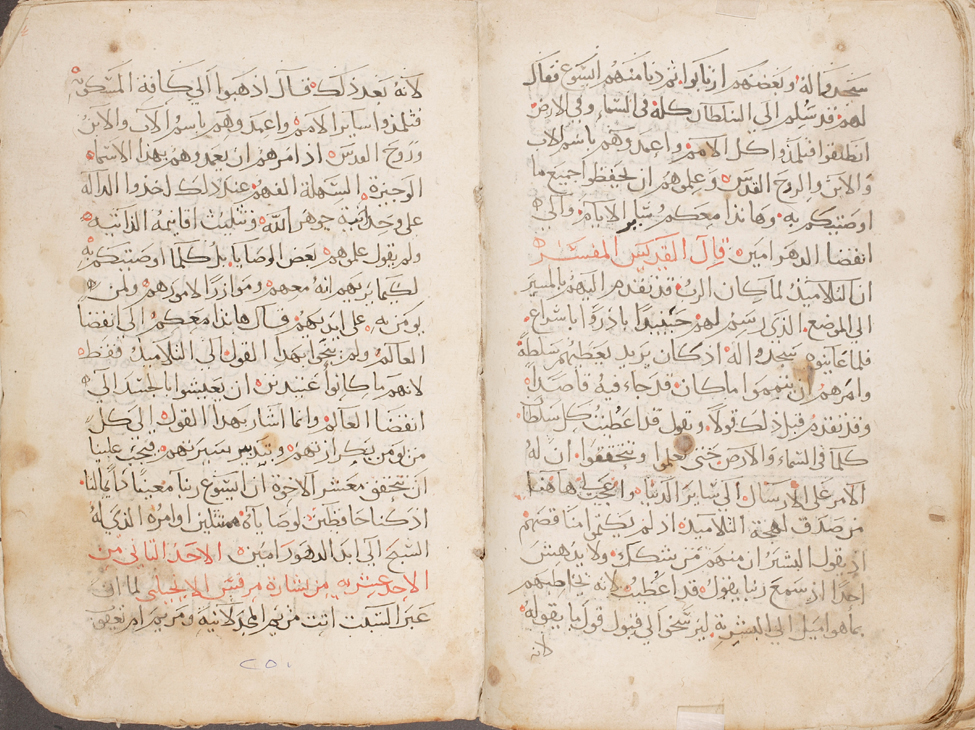 سجدوا له وبعضهم ارتابوا ثم دنا منهم ايسوع فقال
لهم قد سلم الي السلطان كله في السماء وفي الارض
انطلقوا فتلمذوا كل الامم واعمدوهم باسم الاب
والابن والروح القدس وعلموهم ان يحفظوا جميع ما
اوصيتكم به وهانذا معكم ساير الايام والي
انقضا الدهر امين قال القديس المفسر
ان التلاميذ لما كان الرب قد تقدم اليهم بالمسير
الي الموضع الذي رسم لهم حينيذ بادروا باسراع
فلما عاينوه سجدوا له اذ كان يريد يعطيهم سلطة
وامرهم ان يتمموا ما كان قد جاء فيه قاصدا
وقد تقدم قبل ذلك قولا ويقول قد اعطيت كل سلطان
كلما في السماء والارض حتى تعلموا وتتحققوا ان له
الامر على الارسال الي ساير الدنيا واعجب هاهنا
من صدق لهجة التلاميذ اذ لم يكتموا منا قصتهم
اذ يقول البشير ان منهم من شكك ولا يدهش
احدا اذ سمع ربنا يقول قد اعطيت لانه يخاطبهم
بما هو اميل الي البشرية ليرسخوا الي قبول قول ما يقوله
لانه
لانه بعد ذلك قال اذهبوا الي كافة المسكونة
فتلمذوا ساير الامم واعمدوهم باسم الاب والابن
وروح القدس اذ امرهم ان يعمدوهم بهذا الاسماء
الوجيزة السهلة الفهم عند لذلك لخذوا الدالة
على وحدانية جوهر الله وتثليث اقانيمه الذاتية
ولم يقول علموهم بعض الوصايا بل كلما اوصيتكم به
لكيما يريهم انه معهم وموازرا لامورهم ولمن
يومن به على ايديهم قال هانذا معكم الي انقضا
العالم ولم ينحوا بهذا القول الي التلاميذ فقط
لانهم ما كانوا عتيدين ان يعيشوا بالجسد الي
انقضا العالم وانما اشار بهذا القول الي كل
من يومن بكرازتهم وتدبير سيرتهم فيجب علينا
ان نتحقق معشر الاخوة ان ايسوع ربنا معينا دايما لنا
اذ كنا حافظين لوصاياه ممتثلين اوامره الذي له
السبح الي ابد الدهور امين الاحد الثاني من
الاحد عشريه من بشارة مرقس الانجيلي لما ان
عبر السبت اتت مريم المجدلانية ومريم ام يعقوب
٢٥١